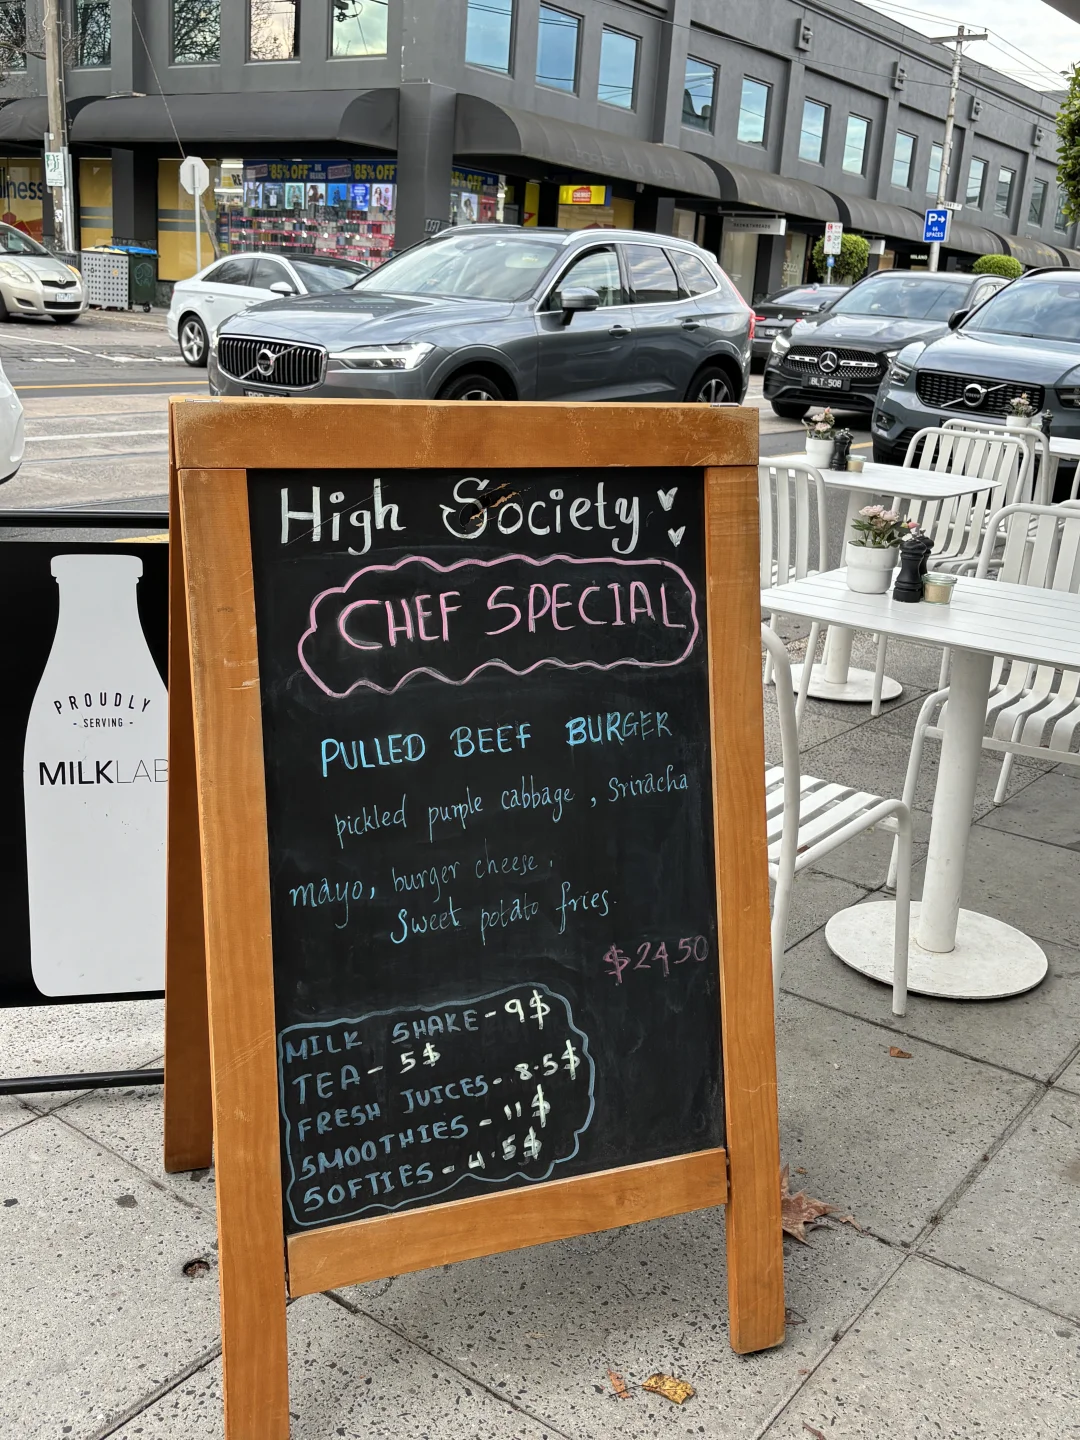 85% OFF
85% OFF
P
46
SPACES
MILANO
BLT 508
High Society
CHEF SPECIAL
PULLED BEEF BURGER
pickled purple cabbage , Sriracha
mayo, burger cheese,
Sweet potato fries.
$24.50
MILK SHAKE - 9$
TEA - 5$
FRESH JUICES - 8.5$
SMOOTHIES - 11$
SOFTIES - 4.5$
PROUDLY
- SERVING -
MILKLAB